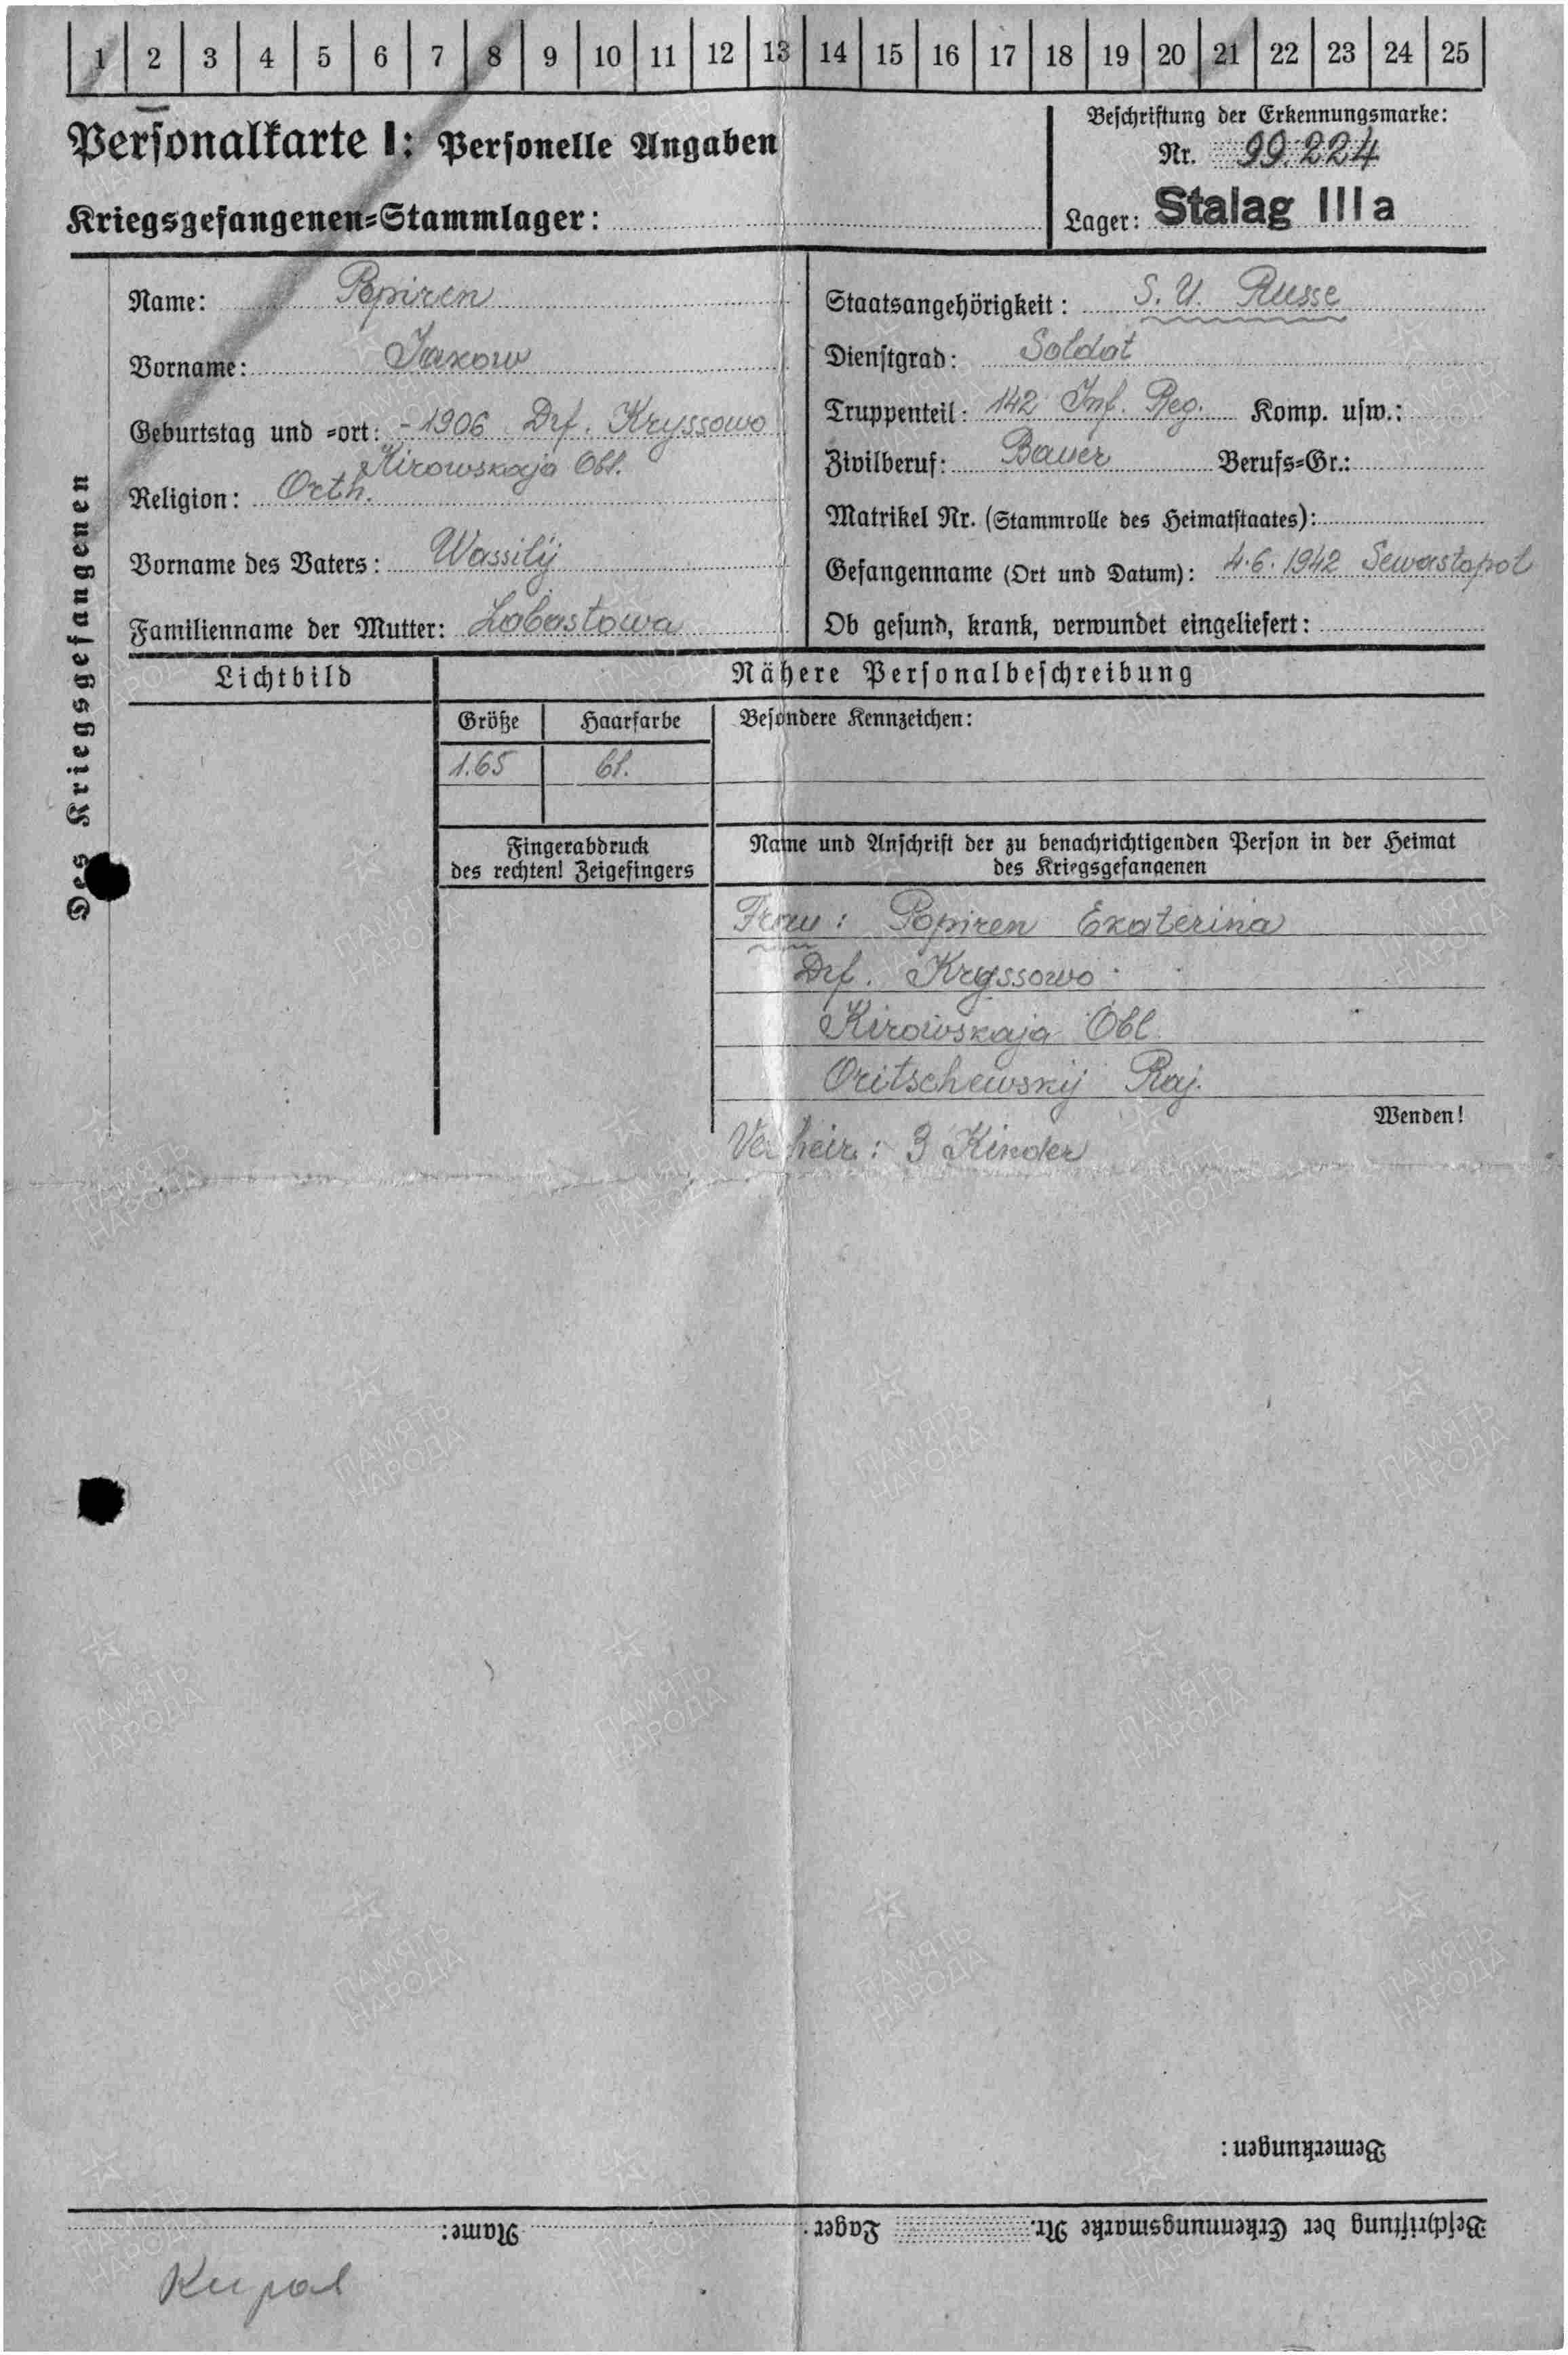 1 2 3 4 5 6 7 8 9 10 11 12 13 14 15 16 17 18 19 20 21 22 23 24 25
Personalkarte I: Personelle Angaben
Kriegsgefangenen-Stammlager:
Beschriftung der Erkennungsmarke:
Nr. 99.224
Lager: Stalag IIIa
Des Kriegsgefangenen
Name: Popiren
Vorname: Jakow
Geburtstag und -ort: - 1906 Drf. Kryssowo
Kirowskaja Obl.
Religion: Orth.
Vorname des Vaters: Wassilij
Familienname der Mutter: Lobastowa
Staatsangehörigkeit: S. U. Russe
Dienstgrad: Soldat
Truppenteil: 142 Inf. Reg. Komp. usw.:
Zivilberuf: Bauer Berufs-Gr.:
Matrikel Nr. (Stammrolle des Heimatstaates):
Gefangenname (Ort und Datum): 4.6.1942 Sewastopol
Ob gesund, krank, verwundet eingeliefert:
Lichtbild
Nähere Personalbeschreibung
Größe Haarfarbe Besondere Kennzeichen:
1.65 bl.
Fingerabdruck
des rechten! Zeigefingers
Name und Anschrift der zu benachrichtigenden Person in der Heimat
des Kriegsgefangenen
Frau: Popiren Ekaterina
Drf. Kryssowo
Kirowskaja Obl.
Oritschewskij Raj.
Wenden!
Verheir.: 3 Kinder
Bemerkungen:
Beschriftung der Erkennungsmarke Nr. Lager: Name:
ПАМЯТЬ
НАРОДА